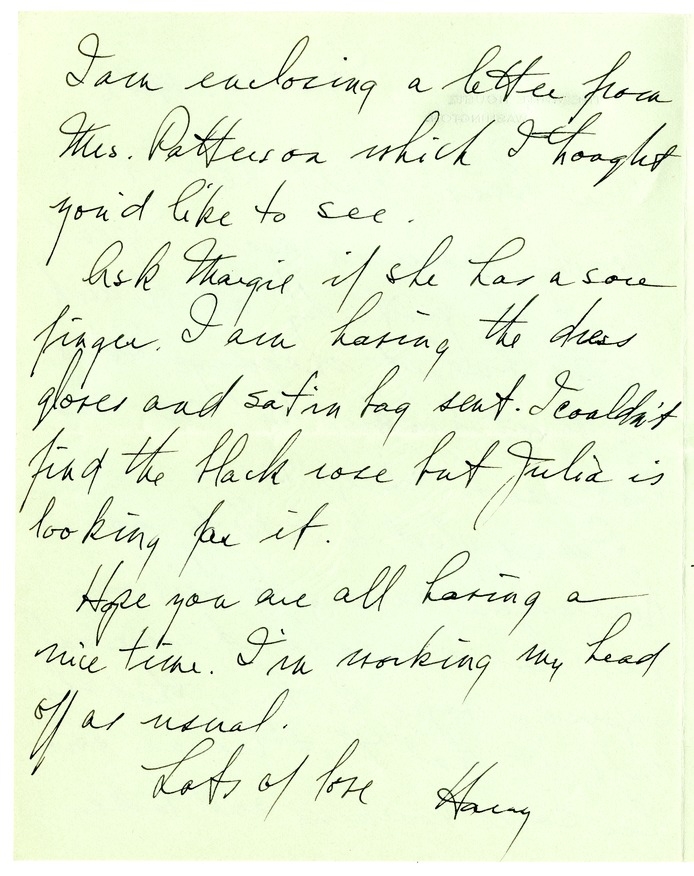 I am enclosing a letter from
Mrs. Patterson which I thought
you'd like to see.
Ask Margie if she has a sore
finger. I am having the dress
gloves and satin bag sent. I couldn't
find the black rose but Julia is
looking for it.
Hope you are all having a
nice time. I'm working my head
off as usual.
Lots of love Harry